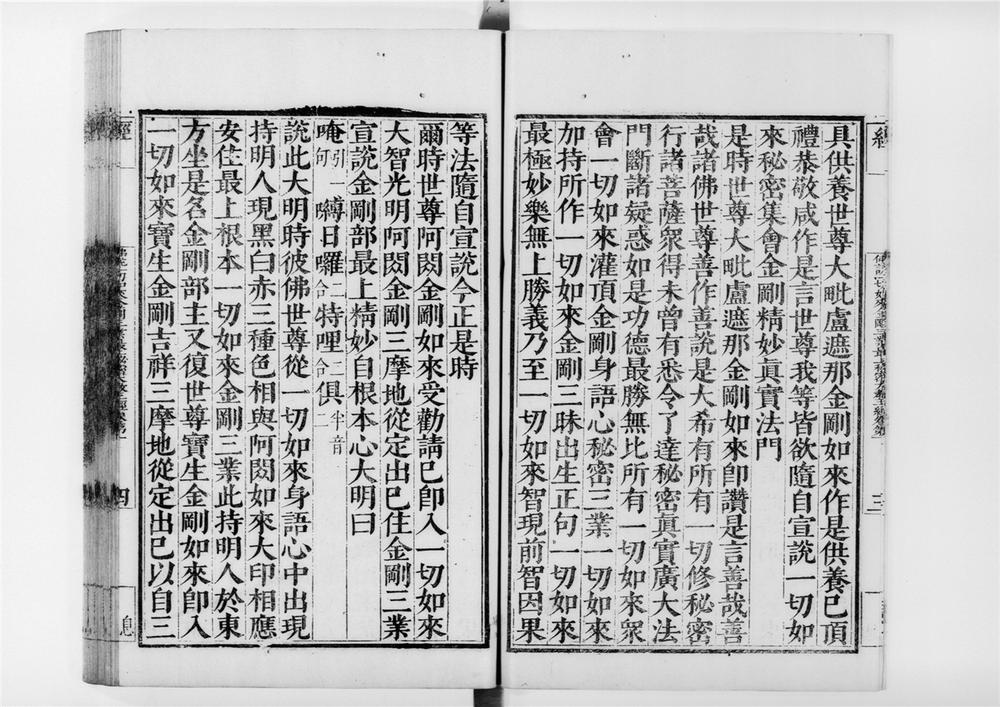 具供養世尊大毗盧遮那金剛如來作是供養已頂
禮恭敬咸作是言世尊我等皆欲隨自宣說一切如
來秘密集會金剛精妙眞實法門
是時世尊大毗盧遮那金剛如來卽讚是言善哉善
哉諸佛世尊善作善說是大希有所有一切修秘密
行諸菩薩衆得未曾有悉令了達秘密眞實廣大法
門斷諸疑惑如是功德最勝無比所有一切如來衆
會一切如來灌頂金剛身語心秘密三業一切如來
加持所作一切如來金剛三昧出生正句一切如來
最極妙樂無上勝義乃至一切如來智現前智因果
經
三
等法隨自宣說今正是時
爾時世尊阿閦金剛如來受勸請已卽入一切如來
大智光明阿閦金剛三摩地從定出已住金剛三業
宣說金剛部最上精妙自根本心大明曰
唵引一句嚩日囉二合特哩二合俱半音二
說此大明時彼佛世尊從一切如來身語心中出現
持明人現黑白赤三種色相與阿閦如來大印相應
安住最上根本一切如來金剛三業此持明人於東
方坐是名金剛部主又復世尊寶生金剛如來卽入
一切如來寶生金剛吉祥三摩地從定出已以自三
經
四